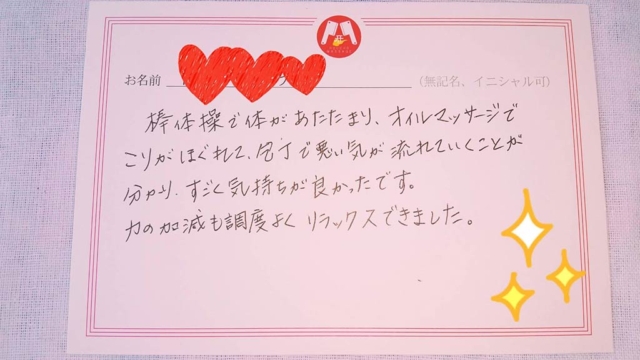 お名前
(無記名、イニシャル可)
棒体操で体があたたまり、オイルマッサージで
こりがほぐれて、包丁で悪い気が流れていくことが
分かり、すごく気持ちが良かったです。
力の加減も調度よくリラックスできました。